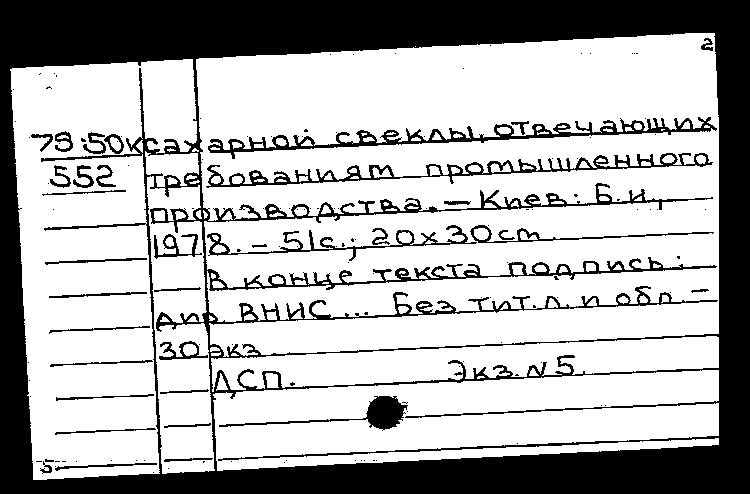 2
79:50к сахарной свеклы, отвечающих
552 требованиям промышленного
производства. – Киев: Б.и.,
1978. – 51с.; 20х30cm
В конце текста подпись:
дир ВНИС ... Без тит.л. и обл –
30 экз
ДСП. Экз. N5.
5